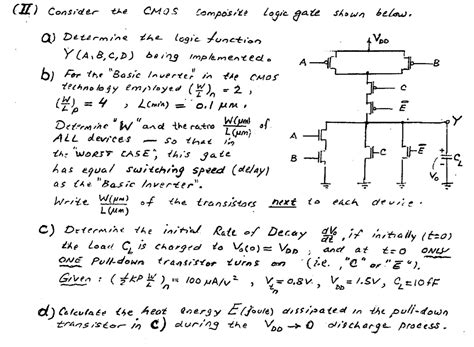 (II) Consider the CMOS Composite logic gate shown below.
a) Determine the logic function
Y(A,B,C,D) being implemented.
b) For the "Basic Inverter" in the CMOS
technology employed (W/L)n = 2,
(W/L)p = 4, L(min) = 0.1 μm.
Determine "W" and the ratio W(μm)/L(μm) of
ALL devices — so that in
the "WORST CASE", this gate
has equal switching speed (delay)
as the "Basic Inverter".
Write W(μm)/L(μm) of the transistors next to each device.
VDD
A
B
C
E̅
Y
A
B
C
E̅
+
Vo
-
CL
c) Determine the initial Rate of Decay dVo/dt, if initially (t=0)
the load CL is charged to Vo(0) = VDD, and at t=0 ONLY
ONE pull-down transistor turns on (i.e., "C" or "E̅").
Given: (½KP W/L)n = 100 μA/V², Vtn = 0.8V, VDD = 1.5V, CL = 10fF
d) Calculate the heat energy E(joule) dissipated in the pull-down
transistor in c) during the VDD → 0 discharge process.